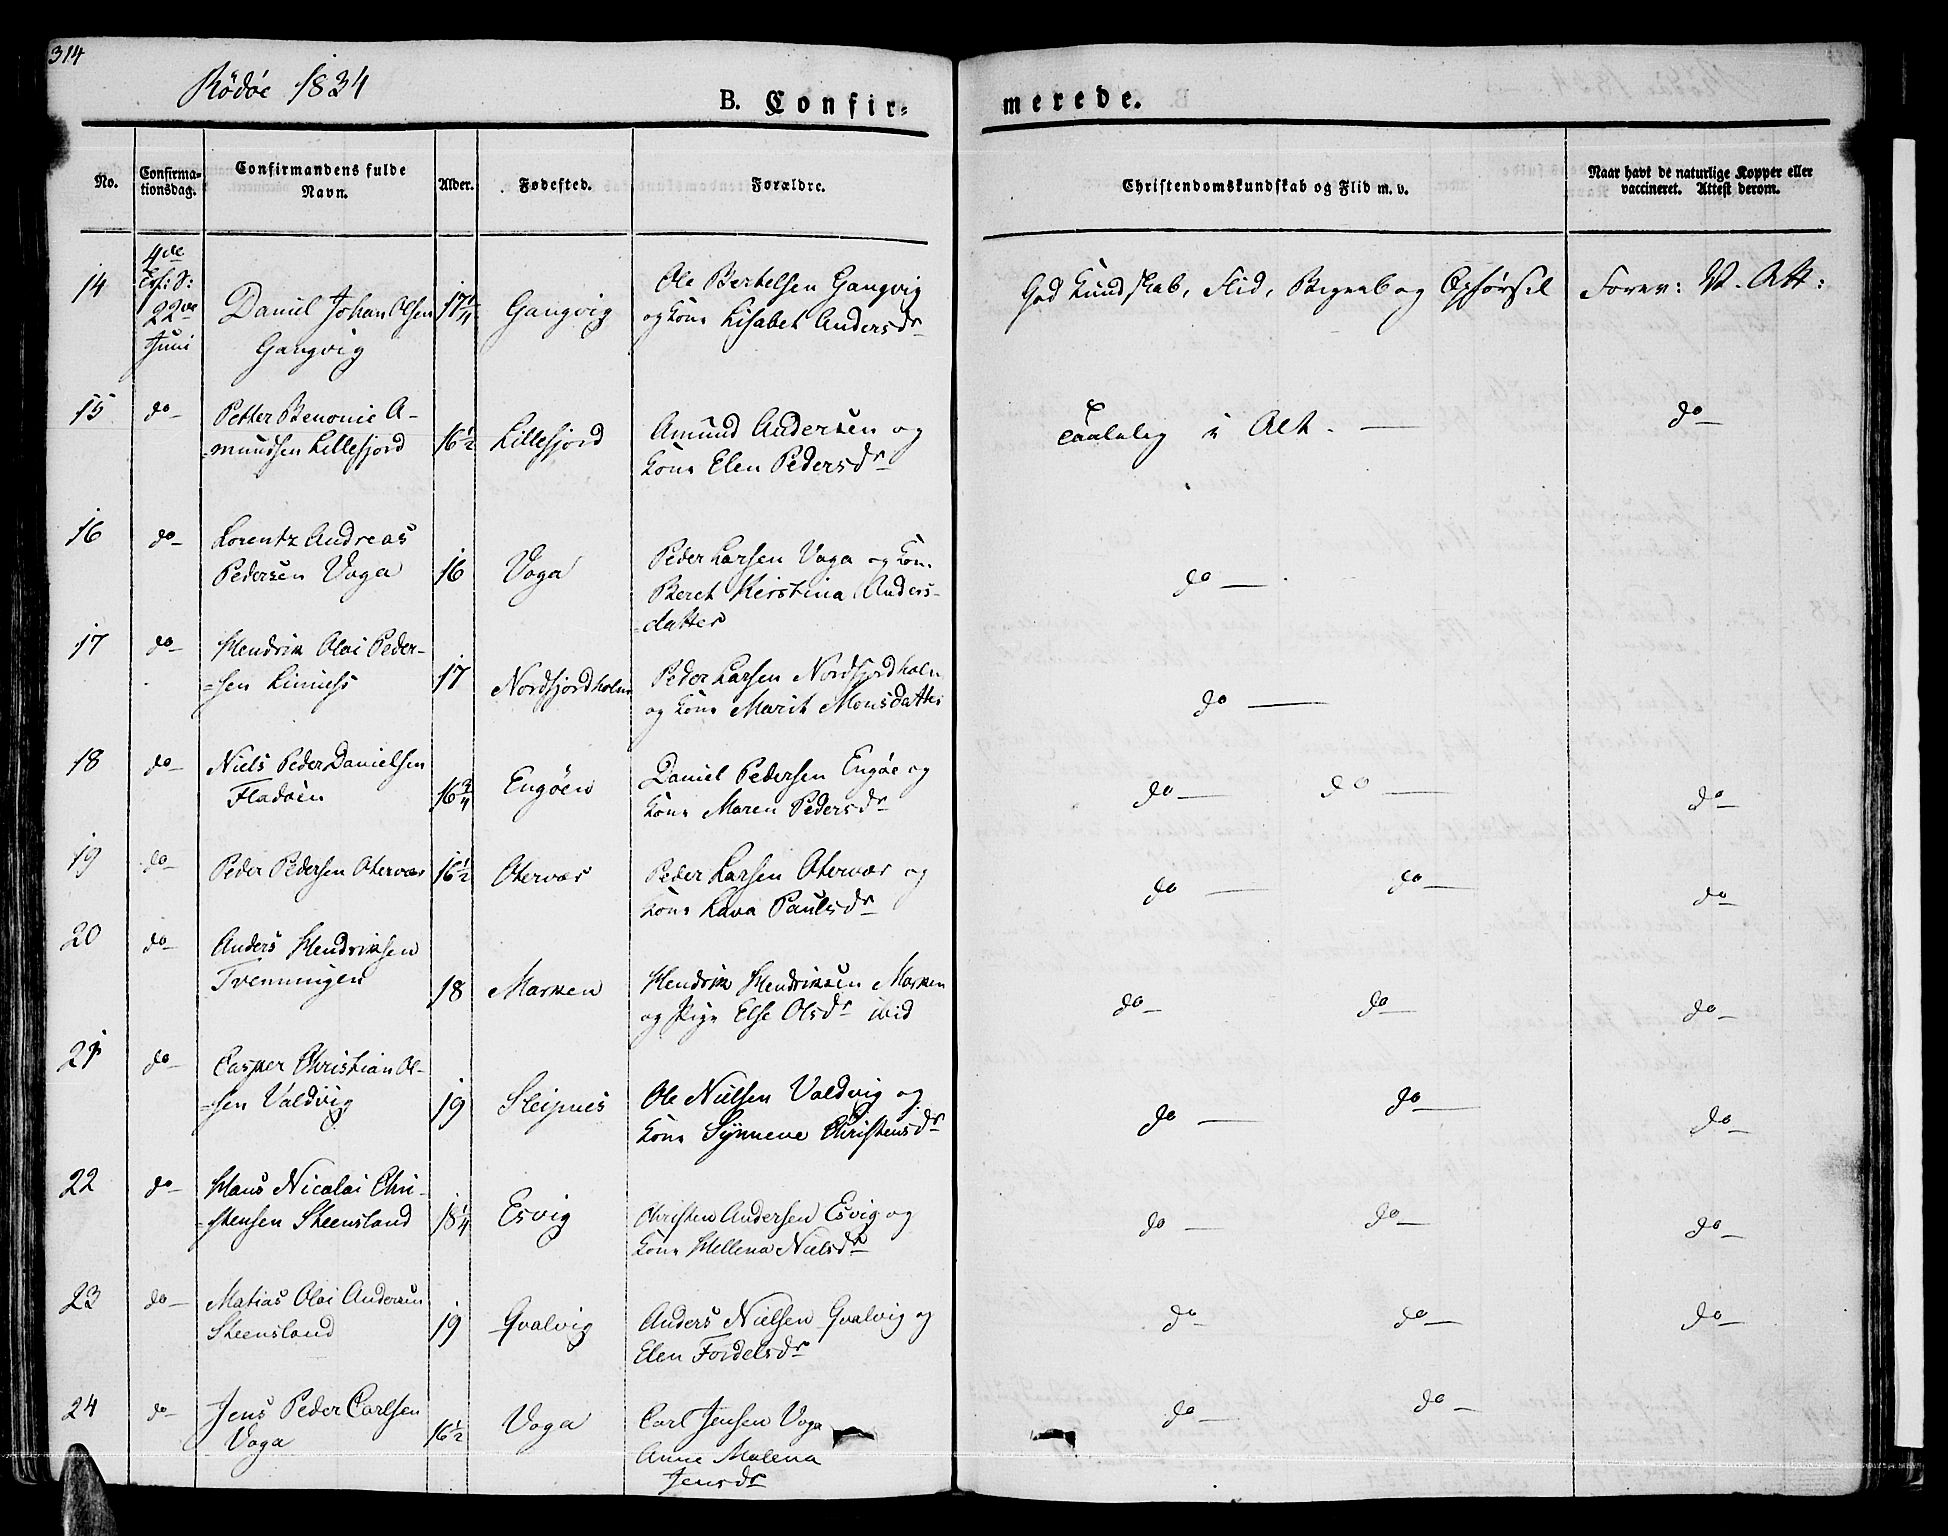 314
Rödöe 1834
B. Confir-
merede.
No.
Confirma-
tionsdag.
Confirmandens fulde
Navn.
Alder.
Fødested.
Forældre.
Christendomskundskab og Flid m. v.
Naar havt de naturlige Kopper eller
vaccineret. Attest derom.
14
4de
22de
Juni
Daniel Johan Olsen
Gangvig
17 1/4
Gangvig
Ole Bertelsen Gangvig
og Kone Lisabet Andersdr
God Kundskab, Flid, Begreb og Opførsel
Forev: V. Att:
15
do
Petter Benonie A-
mundsen Lillefjord
16 1/2
Lillefjord
Amund Andersen og
Kone Elen Pedersdr
Taalelig i Alt.
do
16
do
Lorentz Andreas
Pedersen Vaga
16
Vaga
Peder Larsen Vaga og Kon.
Beret Kirstina Anders-
datter
do
17
do
Hendrik Olai Peder-
sen
17
Nordfjordholm
Peder Larsen Nordfjordholm
og Kone Marit Monsdatter
do
18
do
Niels Peder Danielsen
Fladøen
16 3/4
Engöen
Daniel Pedersen Engöe og
Kone Maren Pedersdr
do do
do
19
do
Peder Pedersen Otervær
16 1/2
Otervær
Peder Larsen Otervær og
Kone Lava Paulsdr
do do
do
20
do
Anders Hendriksen
Tvenningen
18
Masken
Hendrik Hendriksen Masken
og Pige Else Olsdr ibid
do do
do
21
do
Casper Christian Ol-
sen Valdvig
19
Sleipnes
Ole Nielsen Valdvig og
Kone Synneve Christensdr
do do
do
22
do
Hans Nicolai Chri-
stensen Steensland
18 1/4
Esvig
Christen Andersen Esvig og
Kone Hellena Nielsdr
do do
do
23
do
Matias Olai Andersen
Steensland
19
Qvalvig
Anders Nielsen Qvalvig og
Elen Fordelsdr
do do
do
24
do
Jens Peder Carlsen
Vaga
16 1/2
Vaga
Carl Jensen Vaga
Anne Malena
Jensdr
do do